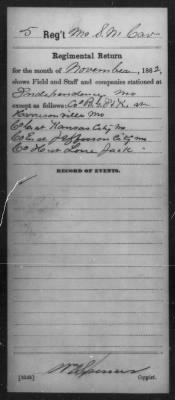 5 Reg't Mo S. M. Cav
Regimental Return
for the month of November, 1862,
shows Field and Staff and companies stationed at
Independence Mo
except as follows: Co
Harrisonville Mo
Co at Kansas City Mo
Co at Jefferson City Mo
Co H at Lone Jack "
RECORD OF EVENTS.
Copyist.